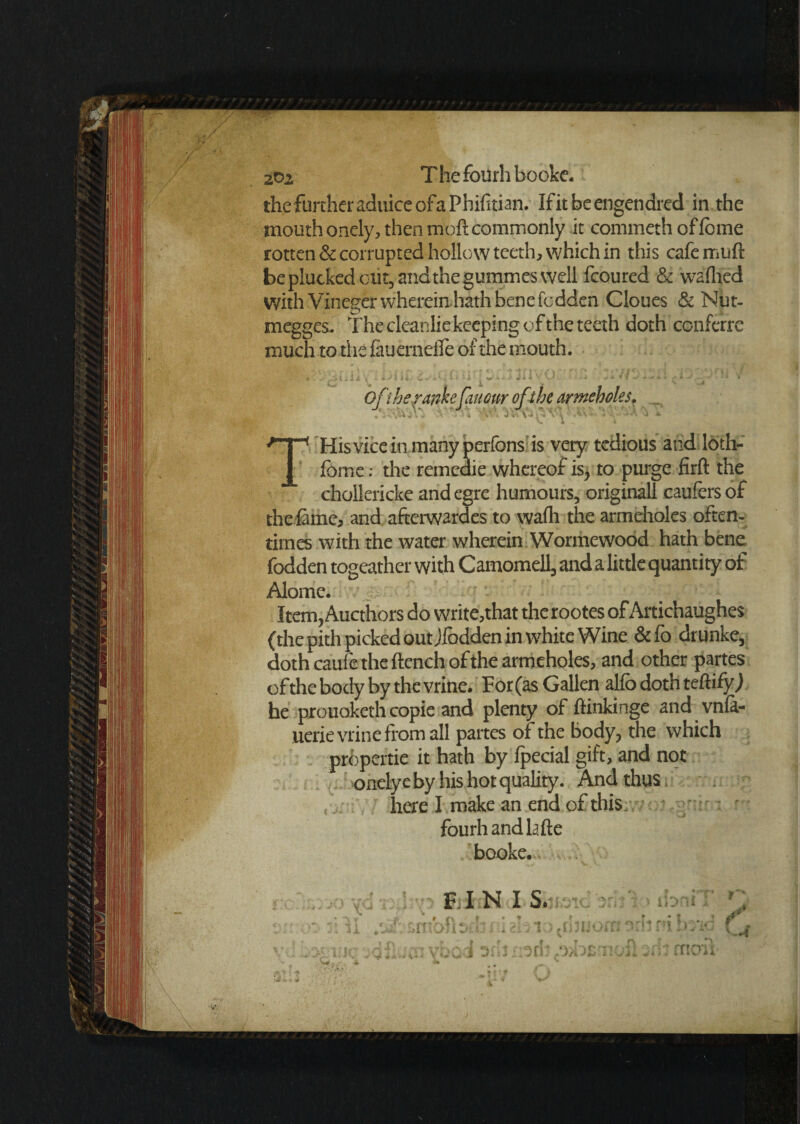 202 The fourh booke.
the further aduice of a Phiſitian. If it be engendred in the
mouth onely, then moſt commonly it commeth of ſome
rotten & corrupted hollow teeth, which in this caſe muſt
be plucked out, and the gummes well ſcoured & waſhed
with Vineger wherein hath bene ſodden Cloues & Nut-
megges. The cleanlie keeping of the teeth doth conferre
much to the ſauerneſſe of the mouth.
Of the ranke ſauour of the armeholes.
THis vice in many perſons is very tedious and loth-
ſome: the remedie whereof is, to purge firſt the
chollericke and egre humours, originall cauſers of
the ſame, and afterwardes to waſh the armeholes often-
times with the water wherein Wormewood hath bene
ſodden togeather with Camomell, and a little quantity of
Alome.
Item, Aucthors do write, that the rootes of Artichaughes
(the pith picked out) ſodden in white Wine & ſo drunke,
doth cauſe the ſtench of the armeholes, and other partes
of the body by the vrine. For (as Gallen alſo doth teſtify)
he prouoketh copie and plenty of ſtinkinge and vnſa-
uerie vrine from all partes of the body, the which
propertie it hath by ſpecial gift, and not
onelye by his hot quality. And thus
here I make an end of this
fourh and laſte
booke.
FINIS.